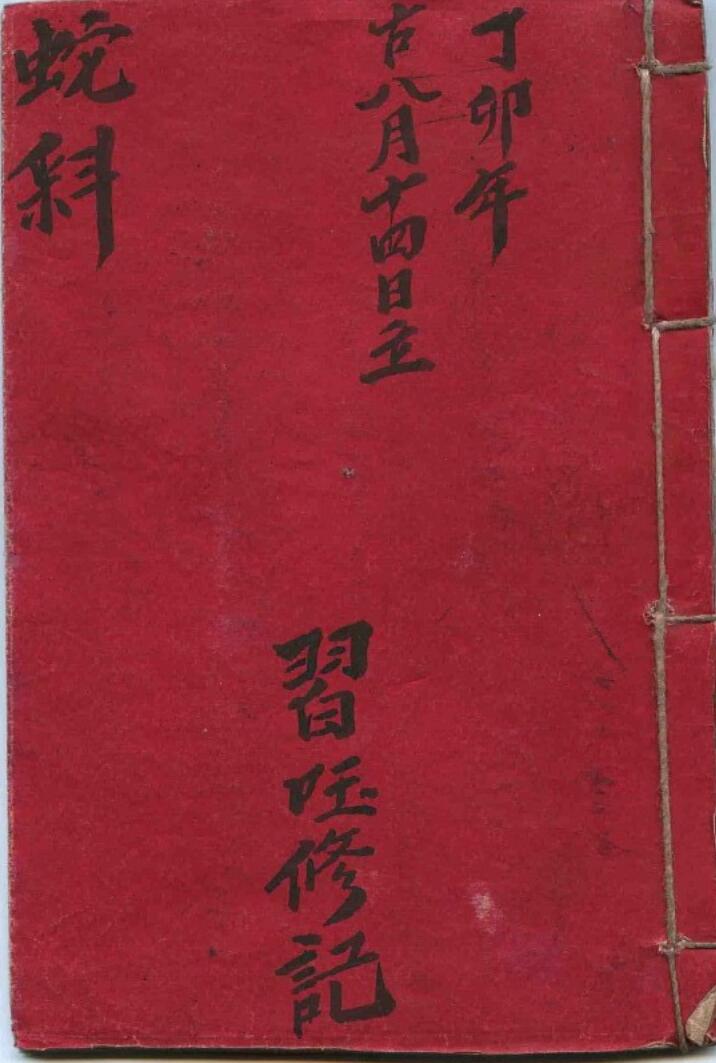 丁卯年
古八月十四日立
習呸修記
蛇科